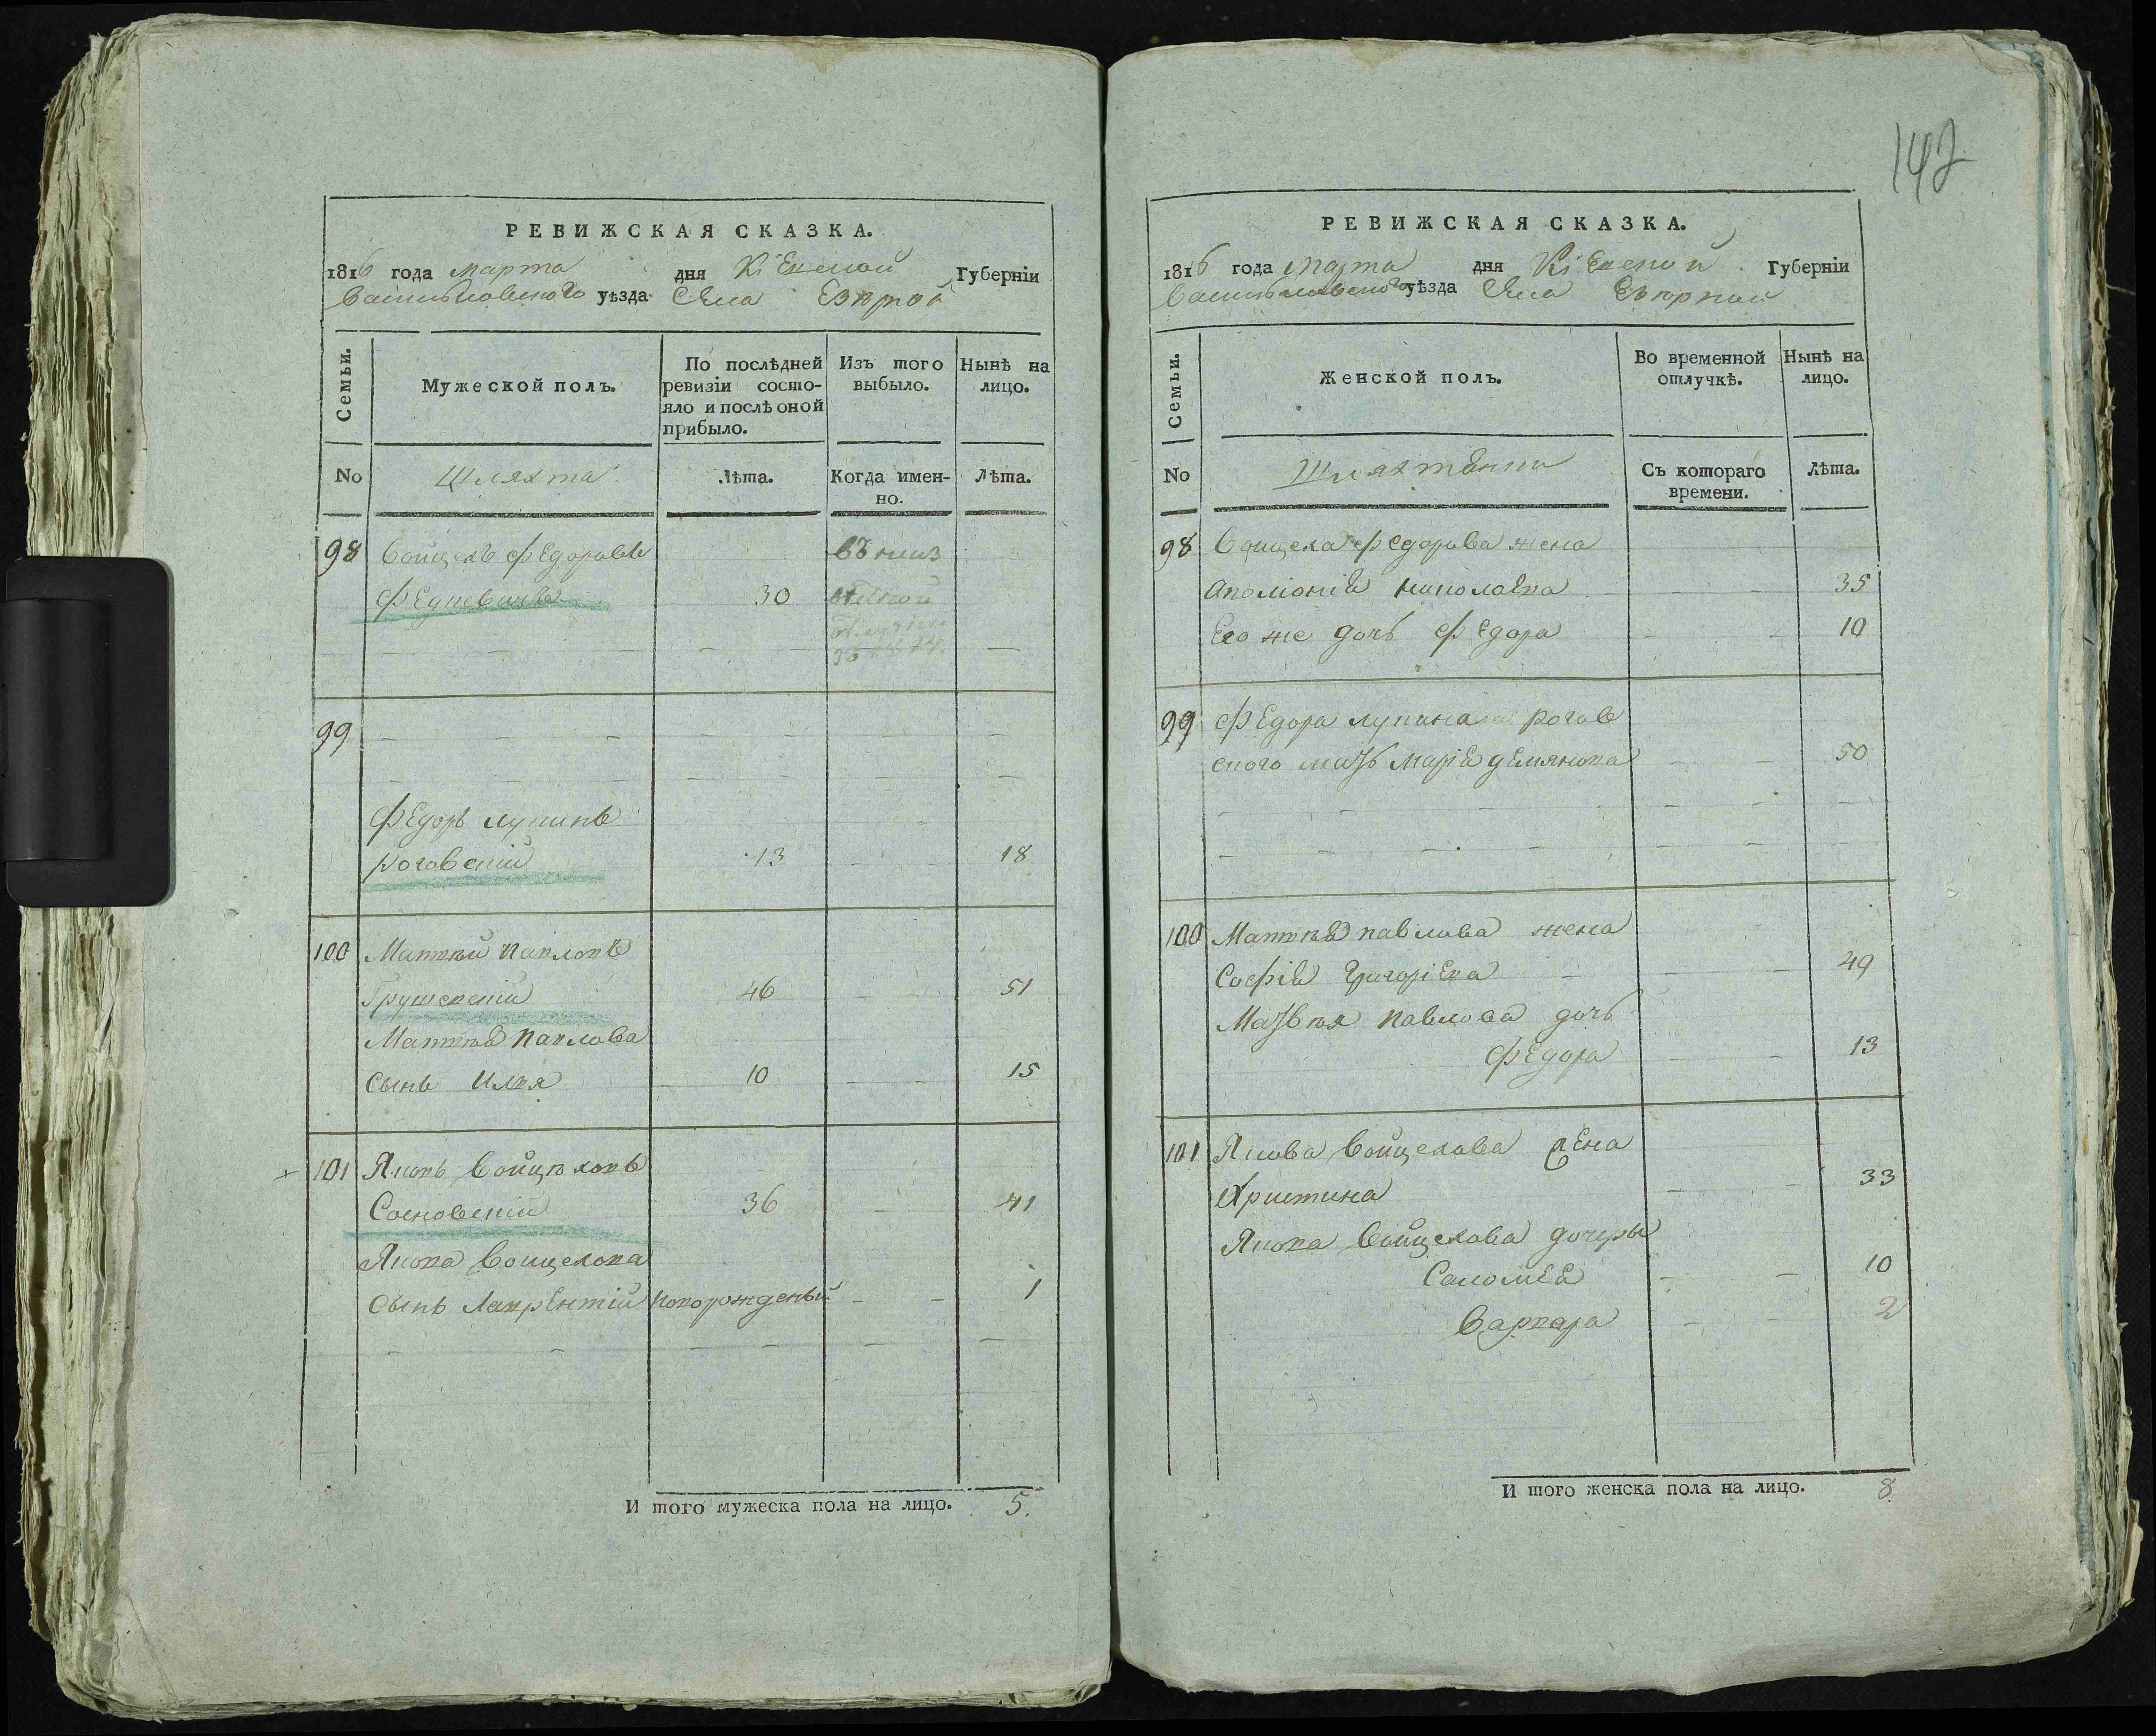 РЕВИЖСКАЯ СКАЗКА.
1816 года марта дня Кіевской Губерніи
Васильковского уѣзда Села
Семьи.
Мужеской полъ.
По послѣдней ревизіи состояло и послѣ оной прибыло.
Изъ того выбыло.
Нынѣ на лицо.
No
Шляхта
Лѣта.
Когда именно.
Лѣта.
98 Войцехъ Федоровъ
30
99
Федоръ
Роговскій 13 18
100 Матвѣй Павловъ
Грушевскій 46 51
Матвѣя Павлова
Сынъ Илья 10 15
101 Яковъ Войцѣховъ
Сосновскій 36 41
Якова Войцехова
Сынъ Лаврентій новорожденый 1
И того мужеска пола на лицо. 5.
142
РЕВИЖСКАЯ СКАЗКА.
1816 года Марта дня Кіевской Губерніи
Васильковского уѣзда Села
Семьи.
Женской полъ.
Во временной отлучкѣ.
Нынѣ на лицо.
No
Съ котораго времени.
Лѣта.
98 Войцеха Федорова жена
Аполіонія Николаева 35
Его же дочь Федора 10
99 Федора Рогов
ского мать Марія Демянова 50
100 Матвѣя Павлова жена
Софія Григоріева 49
Матвѣя Павлова дочь
Федора 13
101 Якова Войцехова жена
Христина 33
Якова Войцехова дочеры
Саломея 10
Варвара 2
И того женска пола на лицо. 8.